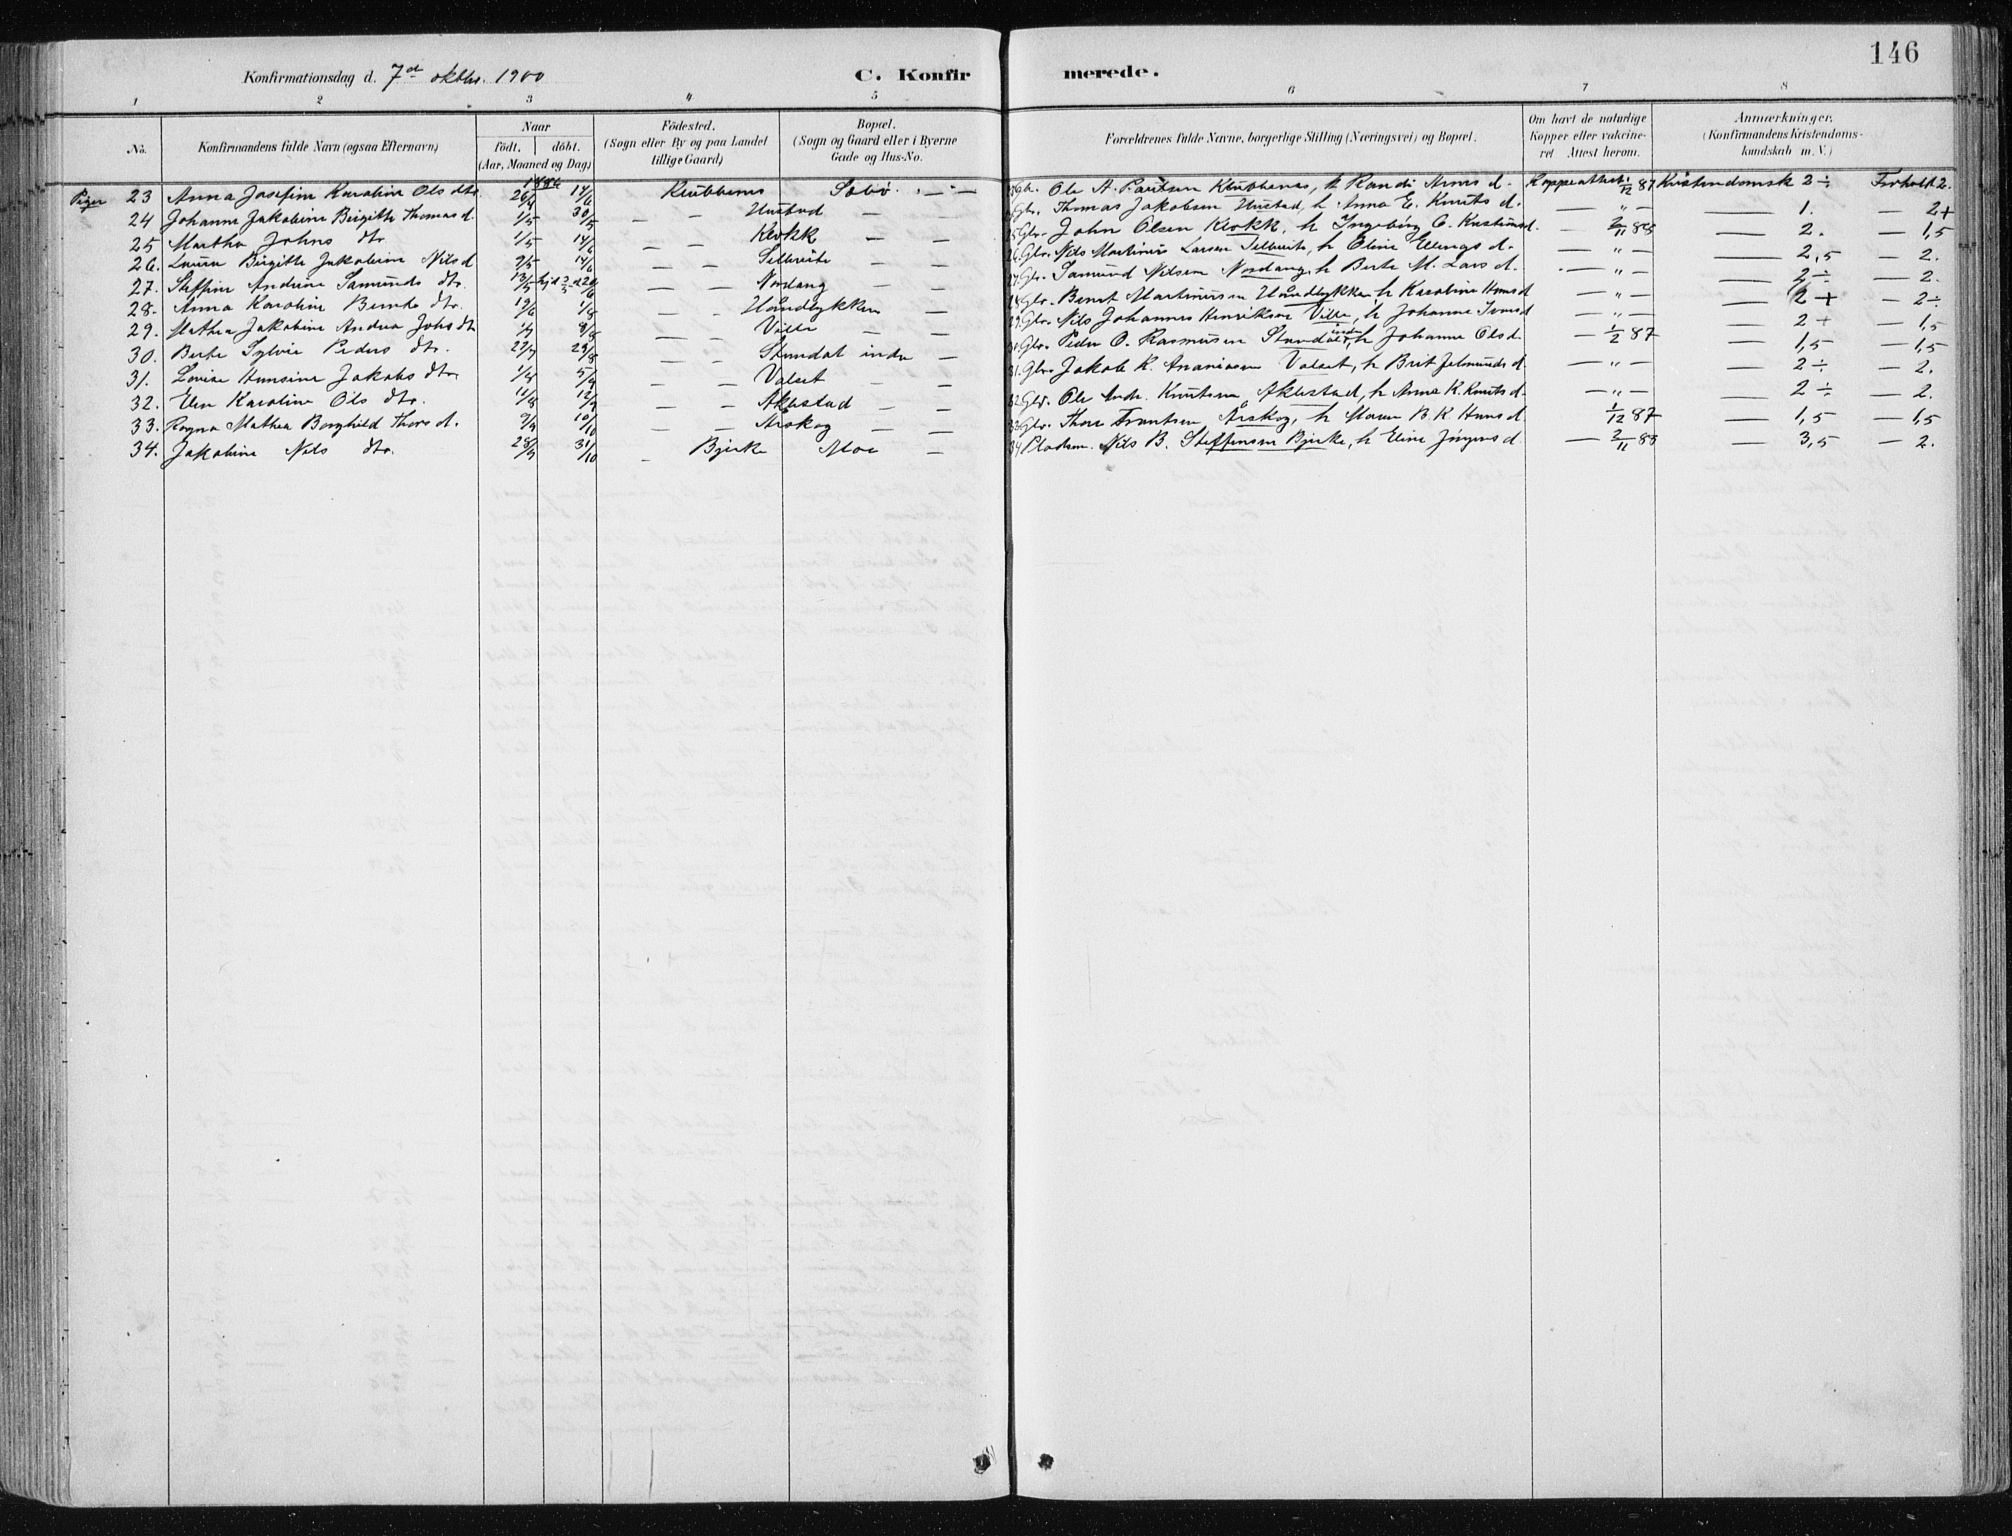 146
Konfirmationsdag d. 7de oktbr. 1900
C. Konfirmerede.
1 2 3 4 5 6 7 8
No.
Konfirmandens fulde Navn (ogsaa Efternavn)
Naar
født. døbt.
(Aar, Maaned og Dag)
Fødested.
(Sogn eller By og paa Landet
tillige Gaard)
Bopæl.
(Sogn og Gaard eller i Byerne
Gade og Hus-No.
Forældrenes fulde Navne, borgerlige Stilling (Næringsvei) og Bopæl.
Om havt de naturlige
Kopper eller vakcine-
ret Attest herom.
Anmærkninger.
(Konfirmandens Kristendoms-
kundskab m. V.)
Piger 23 Anna Josefine Karoline Ols dtr. 14/6 Klubbenes Sæbø Ole A. Klubbenes, h Randi d. Koppeattest 1/12 87 Kristendomsk 2 ÷ Forhold 2.
24 Johanne Jakobine Birgitte Thomas d. 1/5 30/5 — — Hustad — — Gbr. Thomas Jakobsen Hustad, h Anna E. Knuts d. — „ — — 1. — 2+
25 Martha Johns dtr 1/5 14/6 — — Klokk — — Gbr. John Olsen Klokk, h Ingeborg O. d. — 2/11 88 — 2. — 1,5
26. Laura Birgitte Jakobine Nils d 14/6 — — — — Gbr. Nils Martinus Larsen h Oline Ellings d. — „ — — 2,5 — 2.
27. Steffine Andrine Samunds dtr. 13/5 — — Nordang — Gbr. Samund Nilsen Nordang, h Berte M. Lars d. — „ — — 2 ÷ — 2.
28. Anna Karoline Bernts dtr. 19/6 1/8 — — — Gbr. Bernt Martinusen h Karoline Hans d — „ — — 2 + — 2 ÷
29. Mathea Jakobine Andrea dtr 8/8 — — — — Gbr. Nils Johannes Henriksen h Johanne d — „ — — 2 + — 1,5
30. Berte Sylvie Peders dtr. 22/7 29/8 — — Standal indre — Gbr. Peder O. Rasmussen Standal indre, h Johanne Ols d. — 1/2 87 — 1,5 — 1,5
31. Lovise Hansine Jakobs dtr. 5/9 — — Valset — — 31. Gbr. Jakob K. Ananiasen Valset, h Brit d. — „ — — 2 ÷ — 2.
32. Elen Karoline Ols dtr. 11/8 12/9 — — Aklestad — — Gbr. Ole Andr. Knutsen Aklestad, h Anna K. Knuts d. — „ — — 2 ÷ — 2.
33. Ragna Mathea Borghild Thors d. 9/9 10/10 — — Årskog — — Gbr. Thore Frantsen Årskog, h Maren B. K. Hans d. 1/12 87 — 1,5 1,5
34. Jakobine Nils dtr. 28/9 31/10 — Bjerke Moe — 34 Pladsm. Nils B. Steffensen Bjerke, h Eline Jørgens d — 2/11 88 — 3,5 — 2.